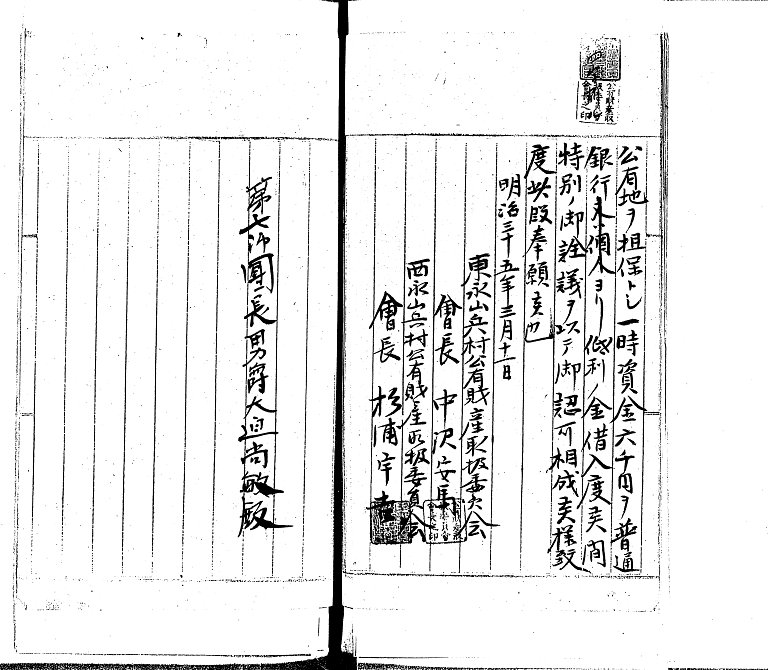 公有地ヲ担保トシ一時資金六千円ヲ普通
銀行又ハ個人ヨリ低利ノ金借入度候間
特別ノ御詮議ヲ以テ御認可相成候様致
度此段奉願候也
明治三十五年三月十一日
東永山兵村公有財産取扱委員会
會長 中沢安馬
西永山兵村公有財産取扱委員会
會長 杉浦宇
第七师團長男爵大迫尚敏殿